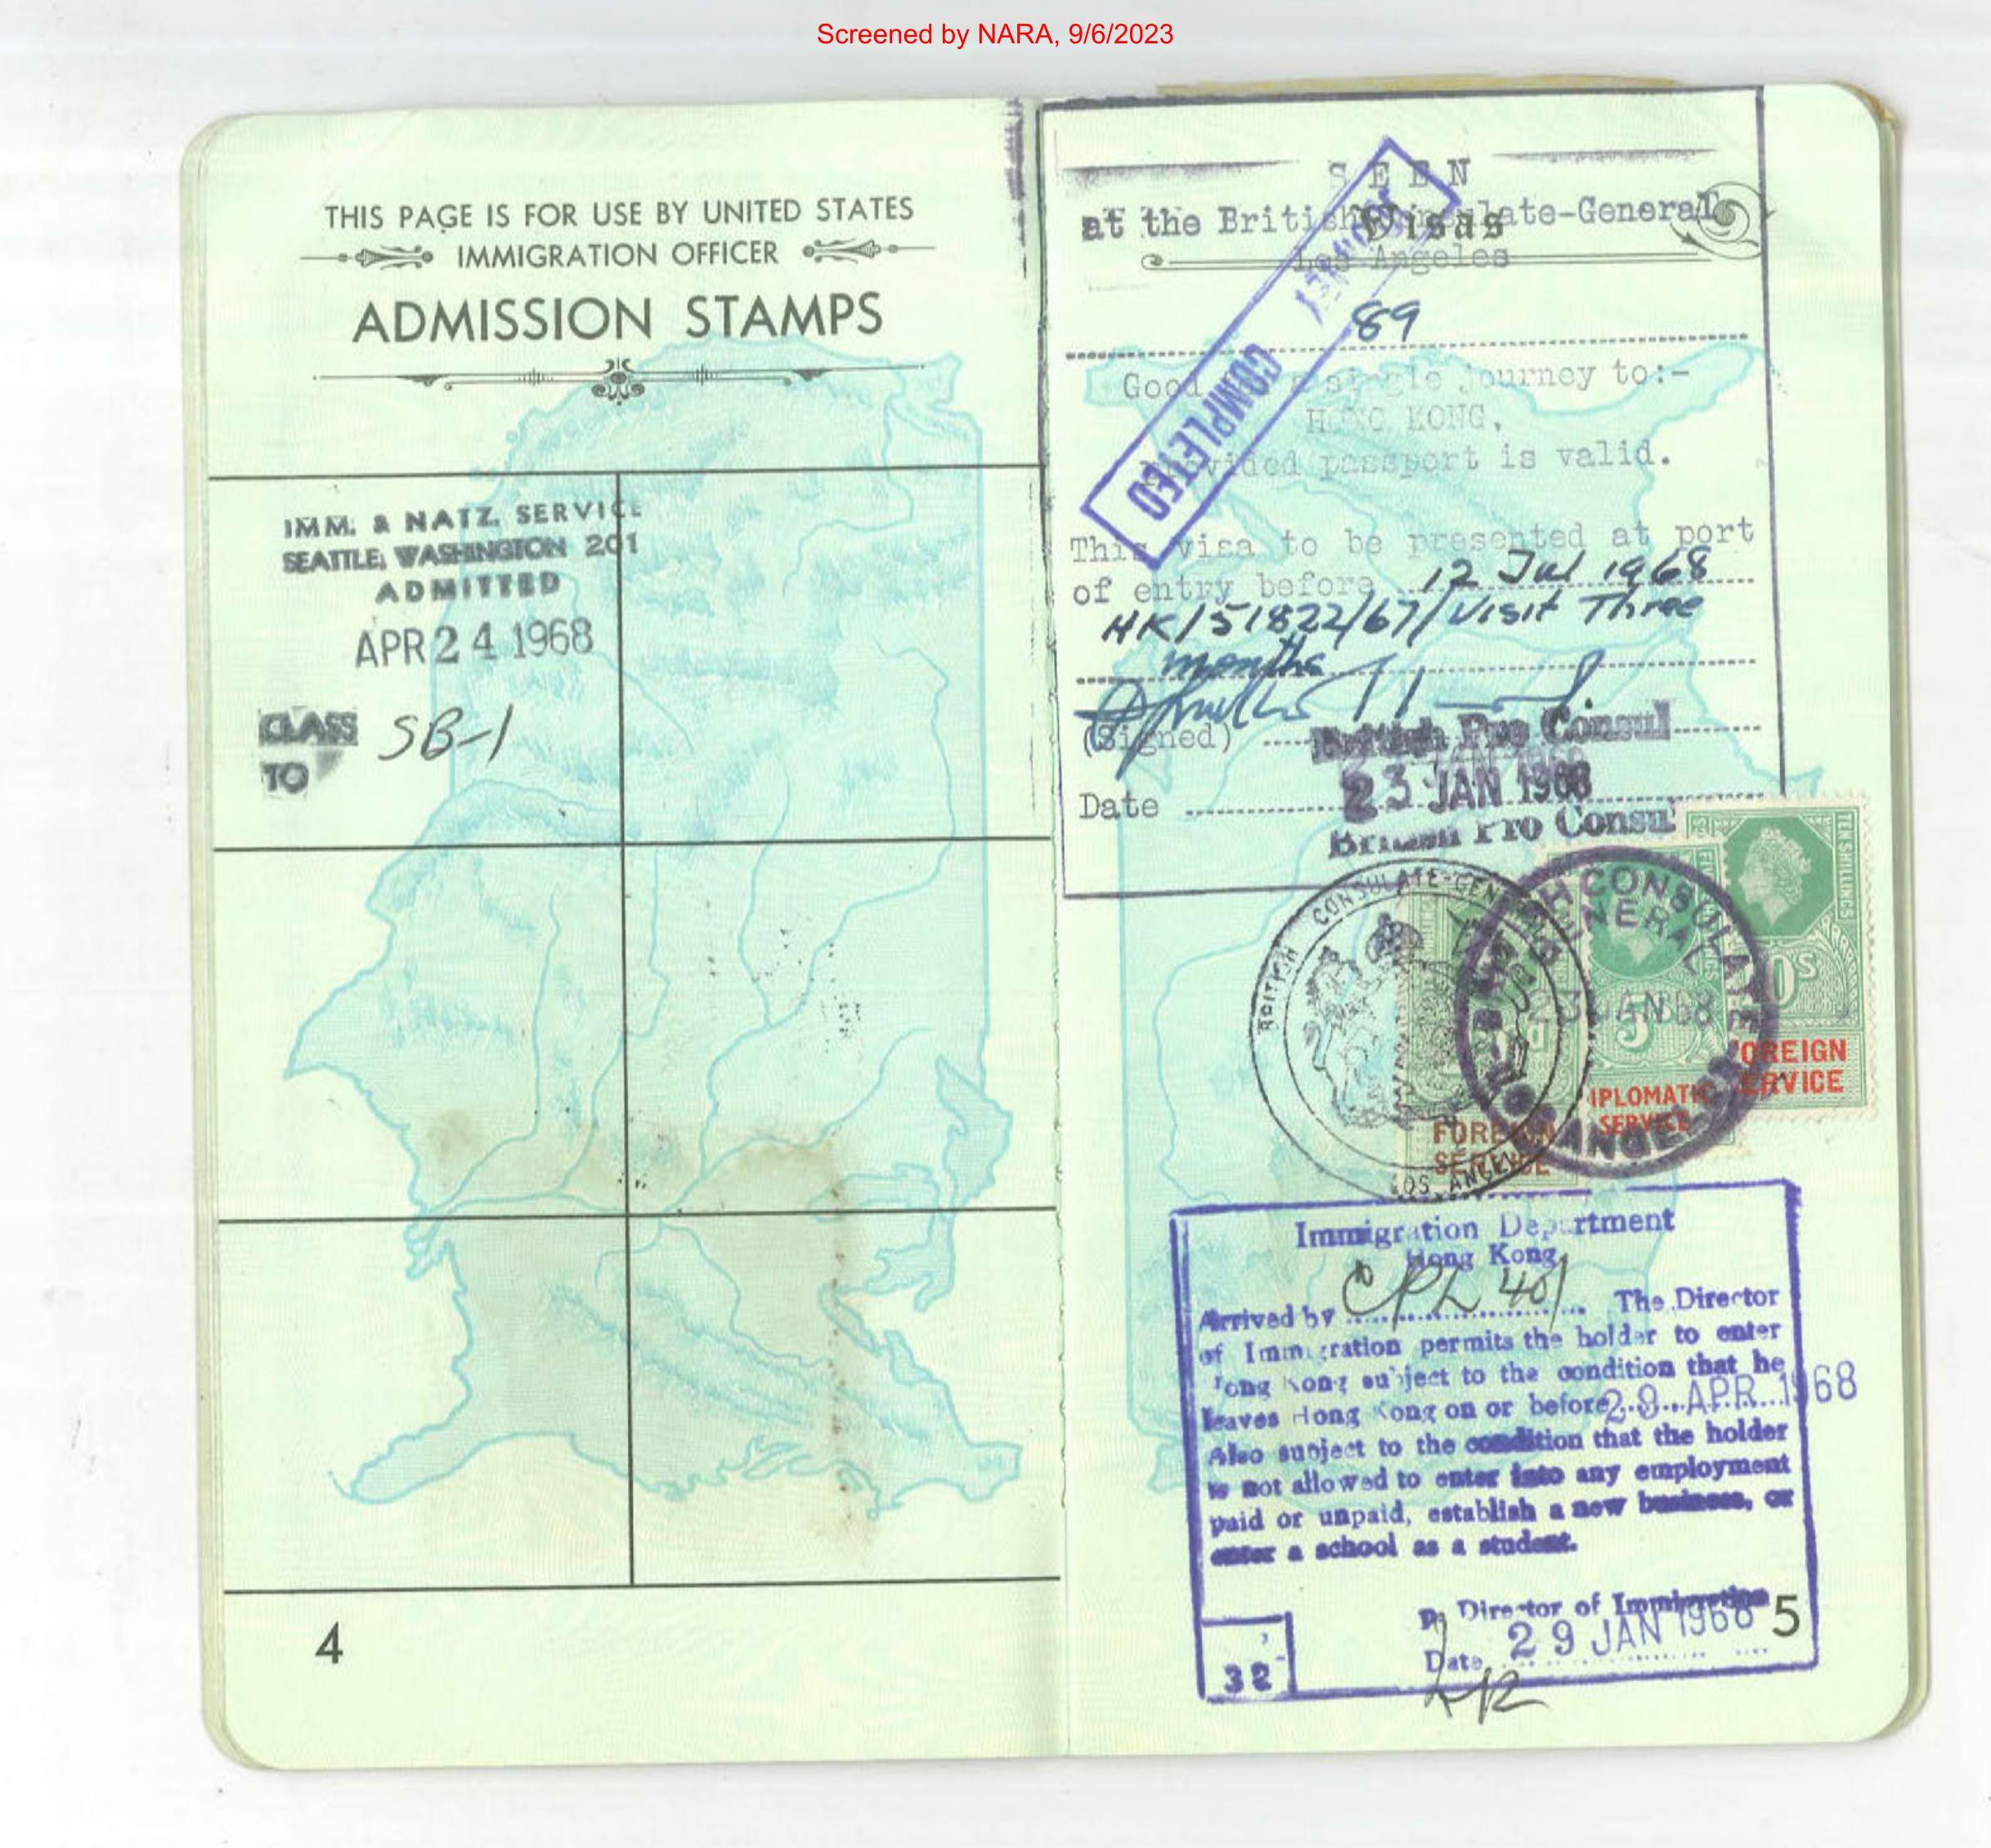 Screened by NARA, 9/6/2023
THIS PAGE IS FOR USE BY UNITED STATES
IMMIGRATION OFFICER
ADMISSION STAMPS
IMM. & NATZ. SERVICE
SEATTLE, WASHINGTON 201
ADMITTED
APR 24 1968
CLASS SB-1
TO
4
SEEN
at the British Consulate-General
Visas
Los Angeles
89
Good a single journey to:-
HONG KONG,
provided passport is valid.
COMPLETED
This visa to be presented at port
of entry before 12 Jul 1968
HK/51822/67/Visit Three
months
(Signed)
British Pro Consul
23 JAN 1968
Date
British Pro Consul
BRITISH CONSULATE-GENERAL
LOS ANGELES
BRITISH CONSULATE
GENERAL
23 JAN 68
LOS ANGELES
TEN SHILLINGS
10S
5
FOREIGN
SERVICE
DIPLOMATIC
SERVICE
FOREIGN
SERVICE
Immigration Department
Hong Kong
Arrived by CPL 401 The Director
of Immigration permits the holder to enter
Hong Kong subject to the condition that he
leaves Hong Kong on or before 29 APR 1968
Also subject to the condition that the holder
is not allowed to enter into any employment
paid or unpaid, establish a new business, or
enter a school as a student.
p. Director of Immigration
Date 29 JAN 1968
32
5